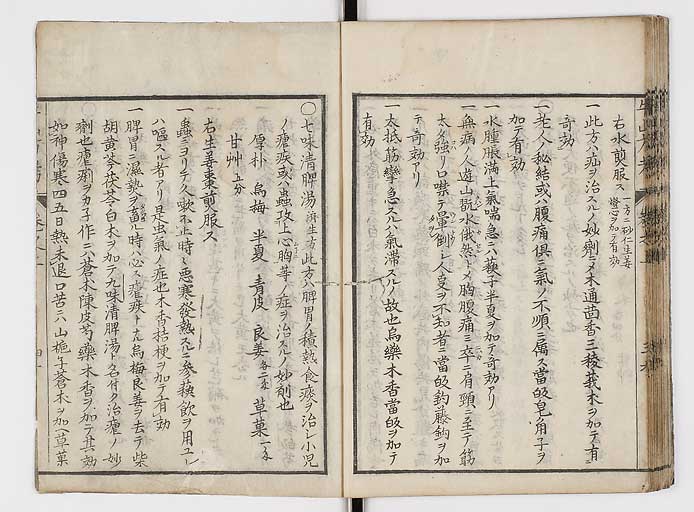 右水煎服ス 一方ニ砂仁生姜 燈心ヲ加テ有効
一 此方ハ疝ヲ治スルノ妙劑ニメ木通茴香三稜莪朮ヲ加テ有
奇効
一 老人ノ秘結或ハ腹痛俱ニ氣ノ不順ニ属ス當皈皂角子ヲ
加テ有効
一 水腫脹満上氣喘急ニハ蘇子半夏ヲ加テ奇効アリ
一 無病ノ人遊山翫水俄然トメ胸腹痛ミ卒ニ肩頸ニ至テ筋
太タ強リ口噤テ暈倒シ人叓ヲ不知者ニ當皈釣藤鈎ヲ加
テ奇効アリ
一 大抵筋攣急スルハ氣滞スルノ故也烏樂木香當皈ヲ加テ
有効
〇七味清脾湯 済生方 此方ハ脾胃ノ積熱食痰ヲ治シ小児
ノ瘧疾或ハ蟲積上心胸等ノ症ヲ治スルノ妙劑也
厚朴 烏梅 半夏 青皮 良姜 各二匁 草菓 一匁
甘艸 五分
右生姜棗煎服ス
一 蟲ニヨリテ久嗽不止時々悪寒發熱スルニ參蘇飲ヲ用ユレ
ハ嘔スル者アリ是虫氣ノ症也木香桔梗ヲ加テ有効
一 脾胃ニ濕熱ヲ畜ル時ハ必ス瘧疾トナル烏梅良姜ヲ去テ柴
胡黄芩茯苓白朮ヲ加テ九味清脾湯ト名付ク治瘧ノ妙
劑也瘧痢ヲカ子作ニハ蒼朮陳皮芍藥木香ヲ加テ其効
如神傷寒四五日熱未退口苦ニハ山梔子蒼朮ヲ加ヘ草菓